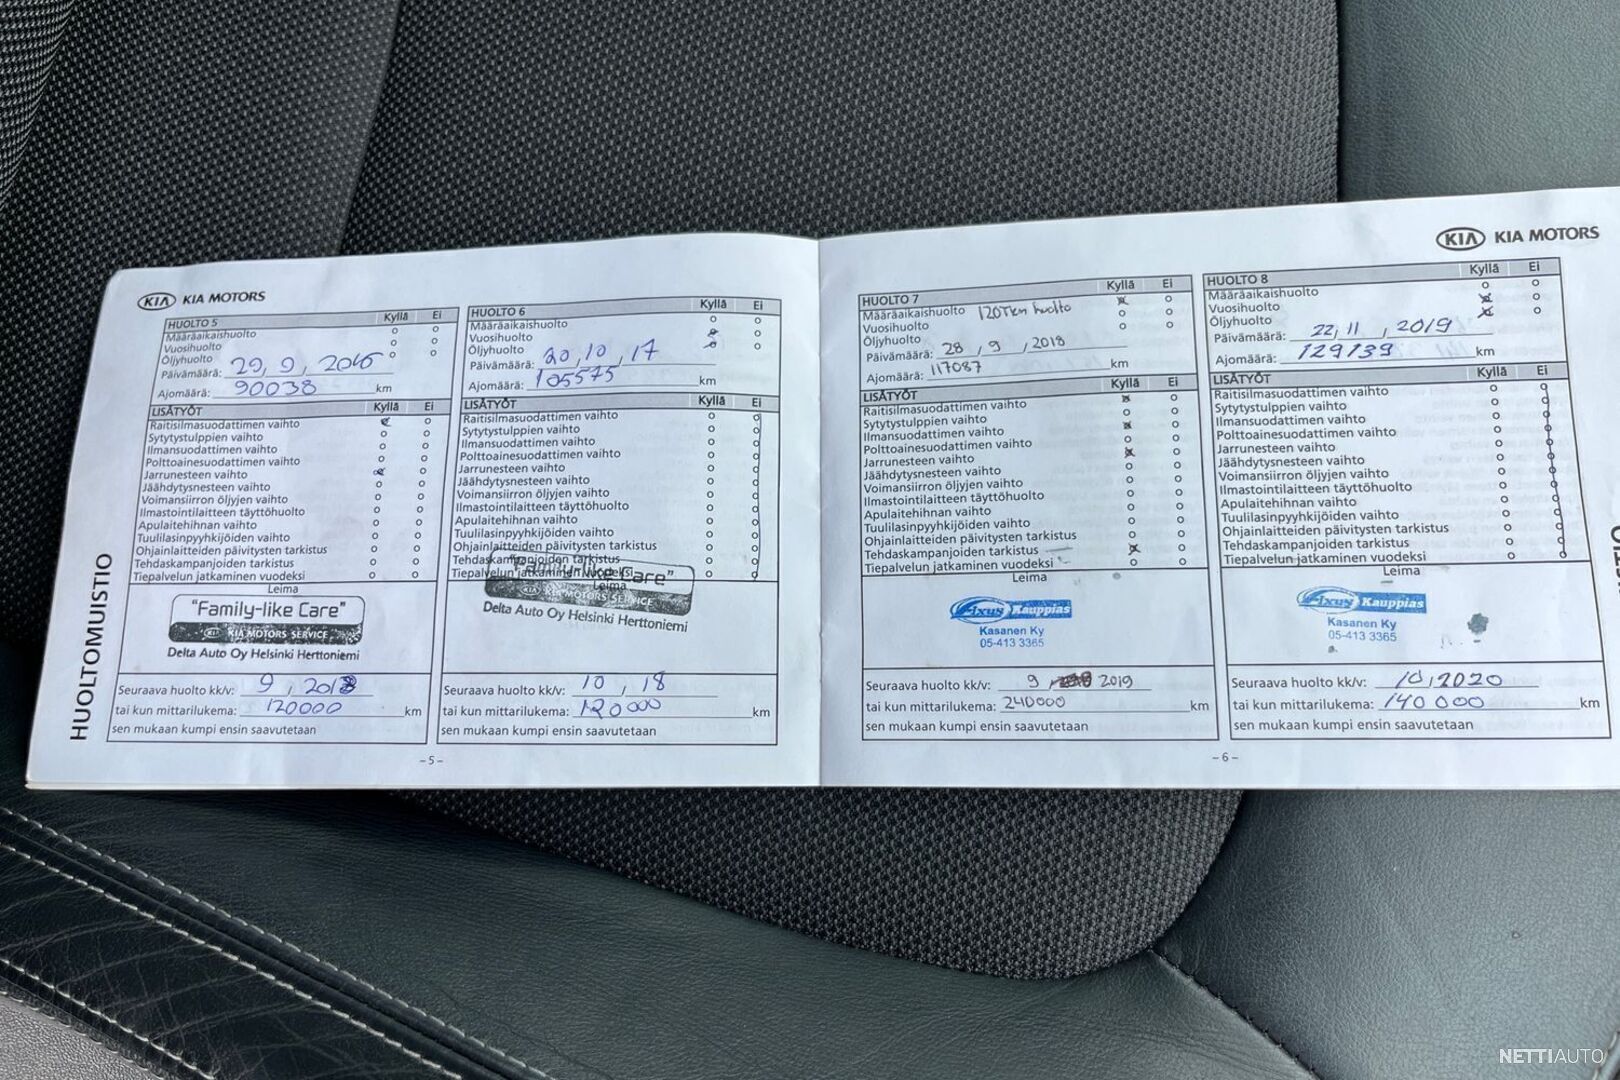 KIA KIA MOTORS
HUOLTO 5 Kyllä Ei
Määräaikaishuolto
Vuosihuolto
Öljyhuolto
Päivämäärä: 29, 9, 2016
Ajomäärä: 90038 km
LISÄTYÖT Kyllä Ei
Raitisilmasuodattimen vaihto
Sytytystulppien vaihto
Ilmansuodattimen vaihto
Polttoainesuodattimen vaihto
Jarrunesteen vaihto
Jäähdytysnesteen vaihto
Voimansiirron öljyjen vaihto
Ilmastointilaitteen täyttöhuolto
Apulaitehihnan vaihto
Tuulilasinpyyhkijöiden vaihto
Ohjainlaitteiden päivitysten tarkistus
Tehdaskampanjoiden tarkistus
Tiepalvelun jatkaminen vuodeksi
Leima
"Family-like Care"
KIA KIA MOTORS SERVICE
Delta Auto Oy Helsinki Herttoniemi
Seuraava huolto kk/v: 9, 2018
tai kun mittarilukema: 120000 km
sen mukaan kumpi ensin saavutetaan
HUOLTO 6 Kyllä Ei
Määräaikaishuolto
Vuosihuolto
Öljyhuolto
Päivämäärä: 20, 10, 17
Ajomäärä: 105575 km
LISÄTYÖT Kyllä Ei
Raitisilmasuodattimen vaihto
Sytytystulppien vaihto
Ilmansuodattimen vaihto
Polttoainesuodattimen vaihto
Jarrunesteen vaihto
Jäähdytysnesteen vaihto
Voimansiirron öljyjen vaihto
Ilmastointilaitteen täyttöhuolto
Apulaitehihnan vaihto
Tuulilasinpyyhkijöiden vaihto
Ohjainlaitteiden päivitysten tarkistus
Tehdaskampanjoiden tarkistus
Tiepalvelun jatkaminen vuodeksi
Leima
"Family-like Care"
KIA KIA MOTORS SERVICE
Delta Auto Oy Helsinki Herttoniemi
Seuraava huolto kk/v: 10, 18
tai kun mittarilukema: 120000 km
sen mukaan kumpi ensin saavutetaan
HUOLTOMUISTIO
- 5 -
KIA KIA MOTORS
HUOLTO 7 Kyllä Ei
Määräaikaishuolto 120Tkm huolto
Vuosihuolto
Öljyhuolto
Päivämäärä: 28, 9, 2018
Ajomäärä: 117087 km
LISÄTYÖT Kyllä Ei
Raitisilmasuodattimen vaihto
Sytytystulppien vaihto
Ilmansuodattimen vaihto
Polttoainesuodattimen vaihto
Jarrunesteen vaihto
Jäähdytysnesteen vaihto
Voimansiirron öljyjen vaihto
Ilmastointilaitteen täyttöhuolto
Apulaitehihnan vaihto
Tuulilasinpyyhkijöiden vaihto
Ohjainlaitteiden päivitysten tarkistus
Tehdaskampanjoiden tarkistus
Tiepalvelun jatkaminen vuodeksi
Leima
Fixus Kauppias
Kasanen Ky
05-413 3365
Seuraava huolto kk/v: 9 2019
tai kun mittarilukema: 240000 km
sen mukaan kumpi ensin saavutetaan
HUOLTO 8 Kyllä Ei
Määräaikaishuolto
Vuosihuolto
Öljyhuolto
Päivämäärä: 22, 11, 2019
Ajomäärä: 129139 km
LISÄTYÖT Kyllä Ei
Raitisilmasuodattimen vaihto
Sytytystulppien vaihto
Ilmansuodattimen vaihto
Polttoainesuodattimen vaihto
Jarrunesteen vaihto
Jäähdytysnesteen vaihto
Voimansiirron öljyjen vaihto
Ilmastointilaitteen täyttöhuolto
Apulaitehihnan vaihto
Tuulilasinpyyhkijöiden vaihto
Ohjainlaitteiden päivitysten tarkistus
Tehdaskampanjoiden tarkistus
Tiepalvelun jatkaminen vuodeksi
Leima
Fixus Kauppias
Kasanen Ky
05-413 3365
Seuraava huolto kk/v: 10, 2020
tai kun mittarilukema: 140000 km
sen mukaan kumpi ensin saavutetaan
- 6 -
NETTIAUTO